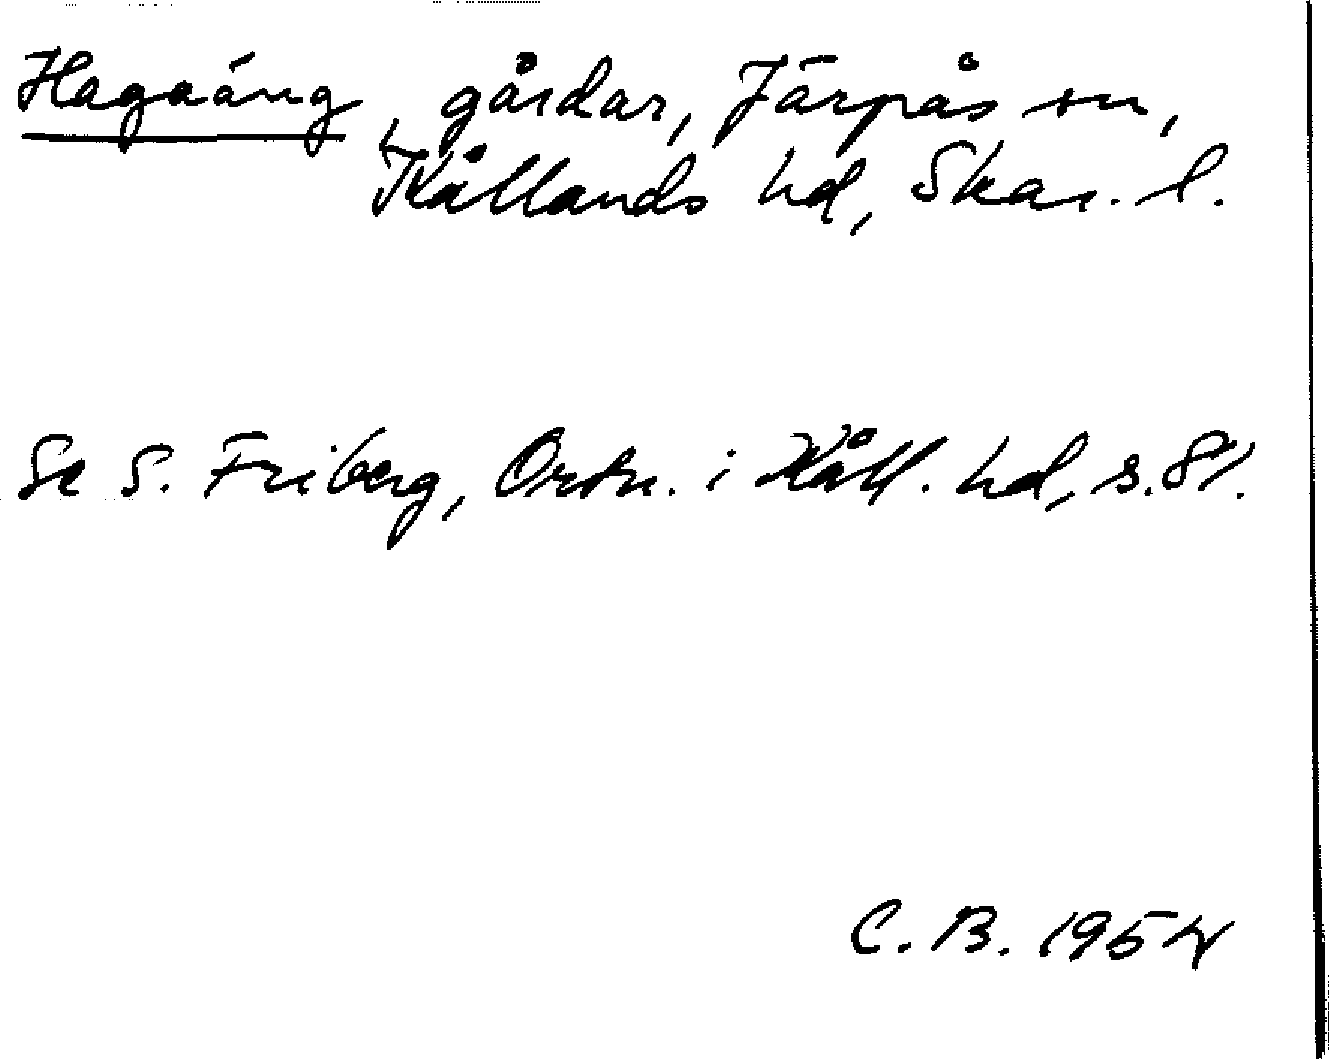 Hagaäng gårdar, Järpås sn,
Kållands hd, Skar. l.
Se S. Friberg, Ortn. i Kåll. hd, s. 81.
C. B. 1954